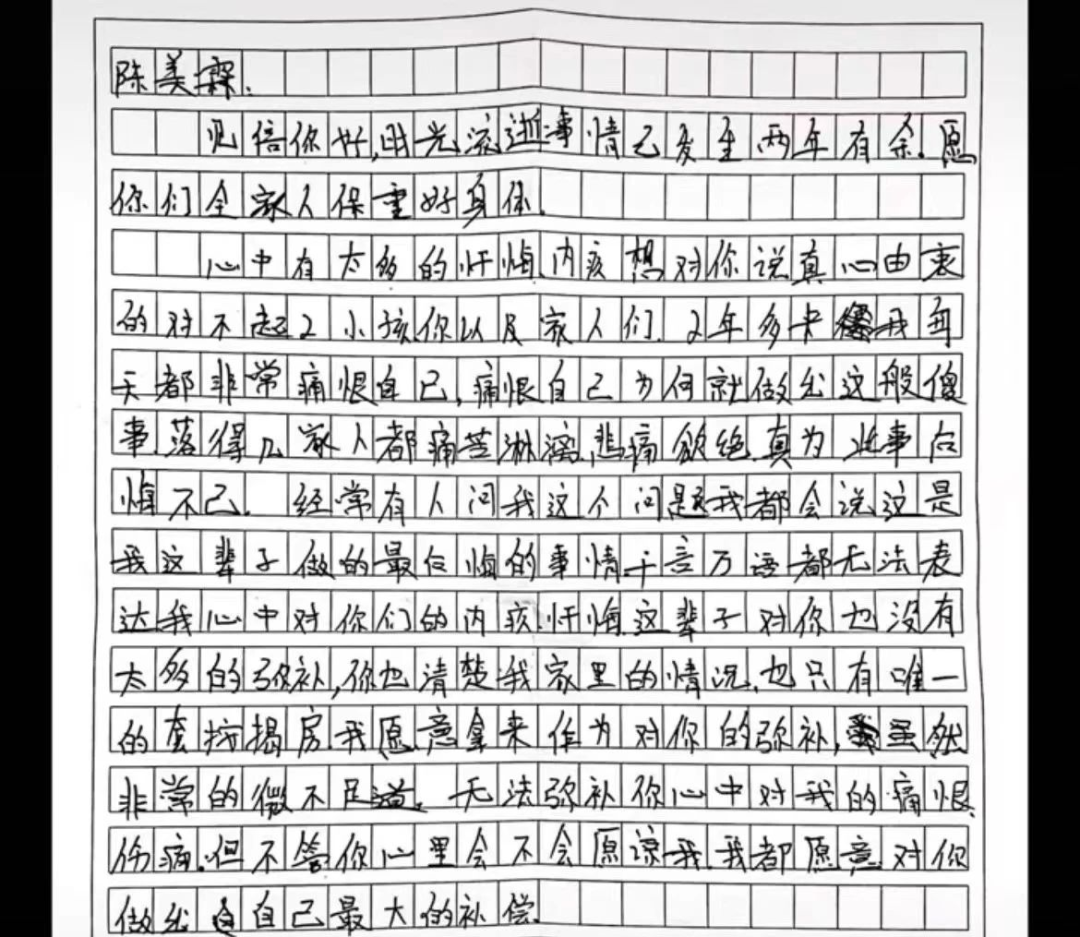 陈美霖:
见信你好,时光流逝事情已发生两年有余.愿
你们全家人保重好身体.
心中有太多的忏悔、内疚想对你说真心由衷
的对不起2小孩、你以及家人们.2年多来我每
天都非常痛恨自己,痛恨自己为何就做出这般傻
事.落得几家人都痛苦淋漓,悲痛欲绝.真为此事后
悔不已.经常有人问我这个问题我都会说这是
我这辈子做的最后悔的事情.千言万语都无法表
达我心中对你们的内疚.忏悔.这辈子对你也没有
太多的弥补,你也清楚我家里的情况.也只有唯一
的套按揭房.我愿意拿来作为对你的弥补,虽然
非常的微不足道.无法弥补你心中对我的痛恨.
伤痛.但不管你心里会不会原谅我.我都愿意对你
做出自己最大的补偿.